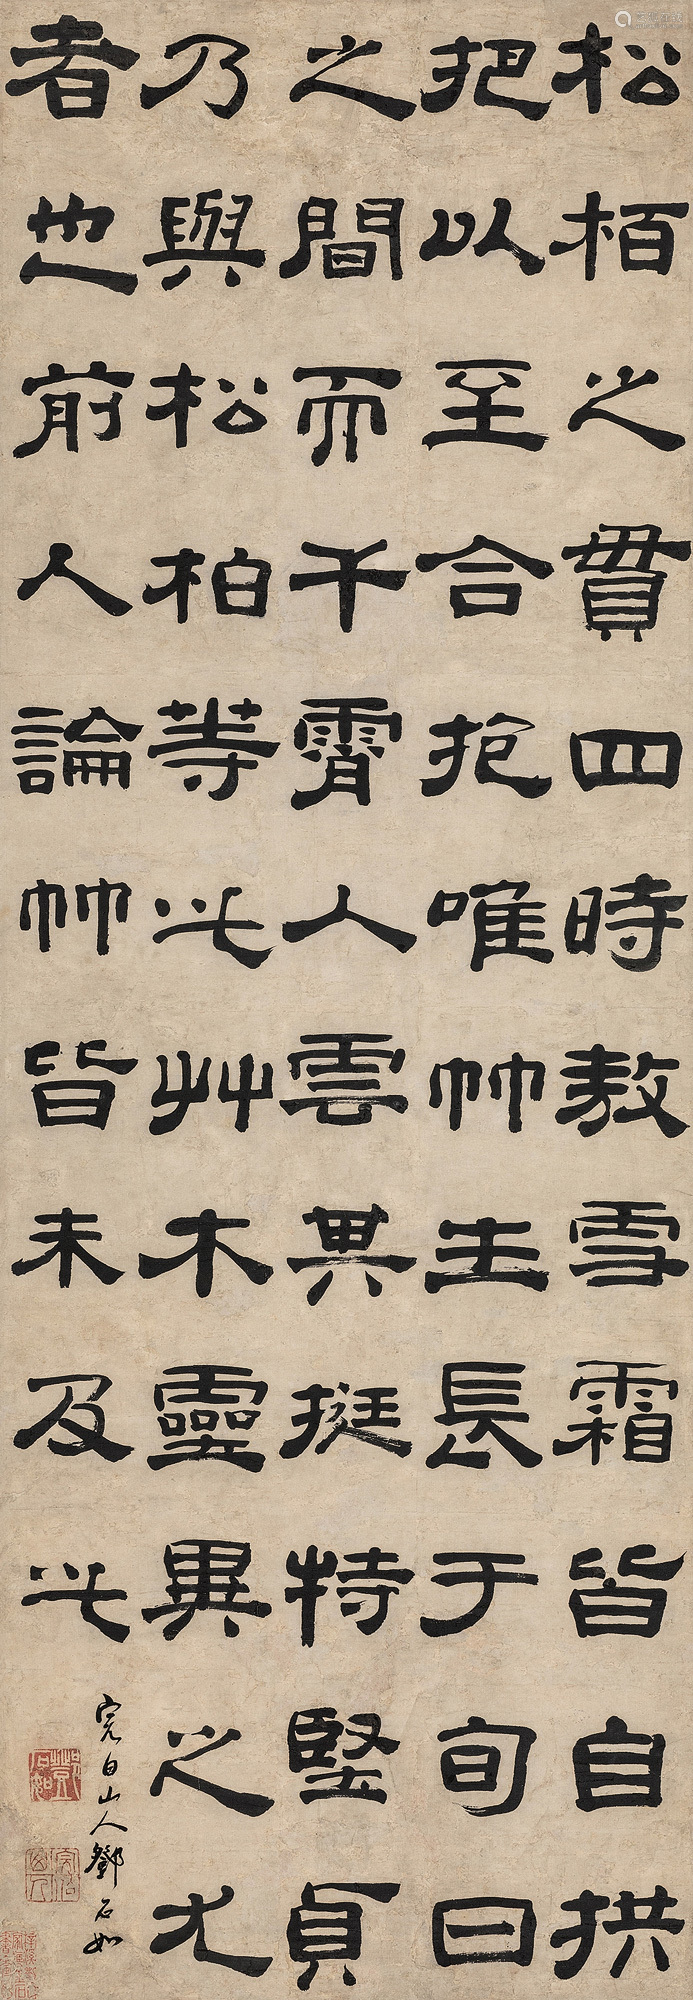 松栢之貫四時敖雪霜皆自拱
把以至合抱唯竹生長于旬日
之間而干霄人雲其挺特堅貞
乃與松柏等此艸木靈異之尤
者也前人論竹皆未及此
完白山人鄧石如
鄧石如